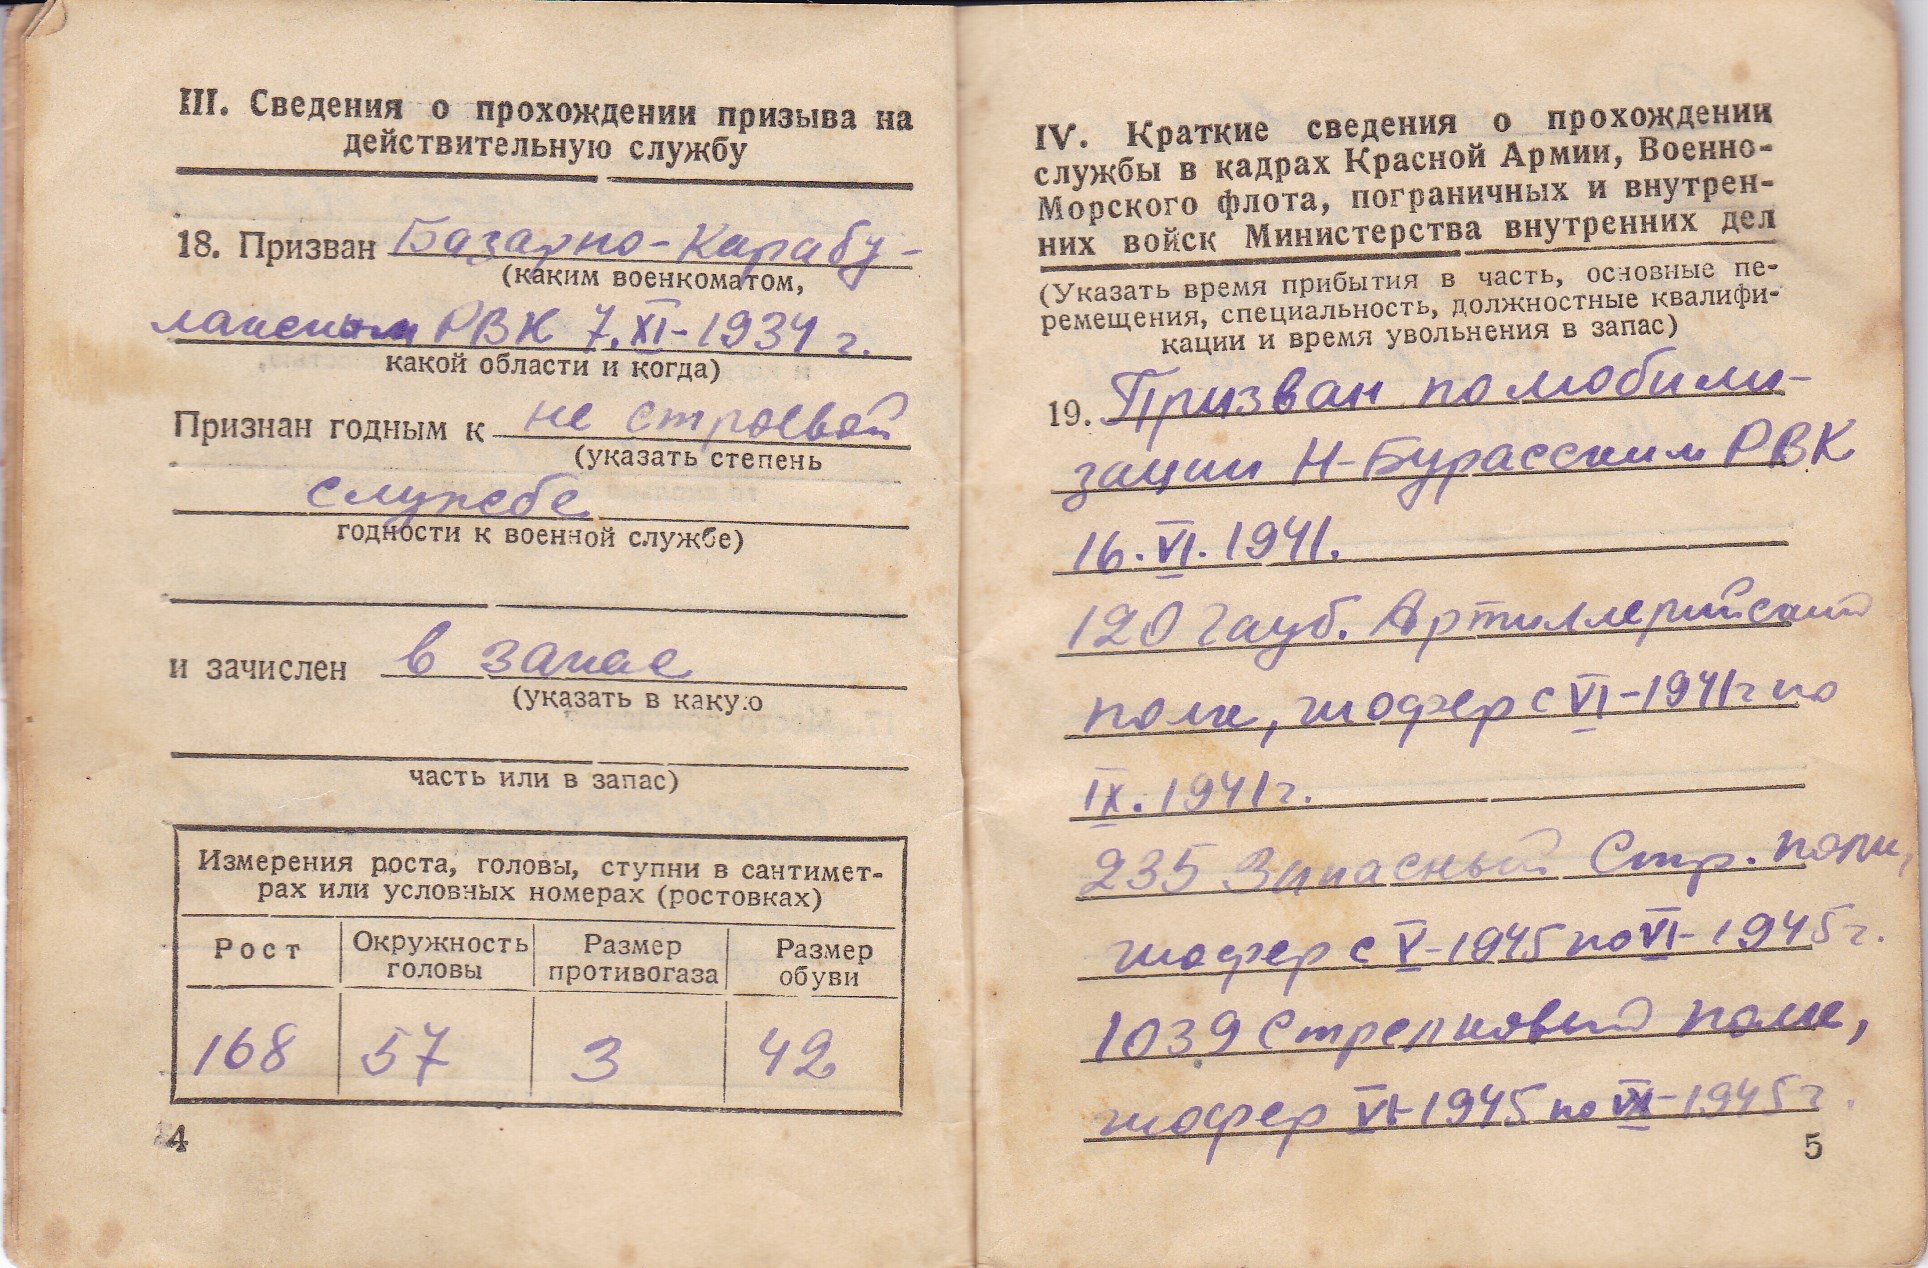 III. Сведения о прохождении призыва на
действительную службу
18. Призван Базарно-Карабу-
(каким военкоматом,
лакским РВК 7.XI-1934 г.
какой области и когда)
Признан годным к не строевой
(указать степень
службе
годности к военной службе)
и зачислен в запас
(указать в какую
часть или в запас)
Измерения роста, головы, ступни в сантимет-
рах или условных номерах (ростовках)
Рост Окружность головы Размер противогаза Размер обуви
168 57 3 42
4
IV. Краткие сведения о прохождении
службы в кадрах Красной Армии, Военно-
Морского флота, пограничных и внутрен-
них войск Министерства внутренних дел
(Указать время прибытия в часть, основные пе-
ремещения, специальность, должностные квалифи-
кации и время увольнения в запас)
19. Призван по мобили-
зации Н-Бурасским РВК
16.VI.1941.
120 гауб. Артиллерийский
полк, шофер с VI-1941г по
IX.1941г.
235 Запасный Стр. полк,
шофер с V-1945 по VI-1945г.
1039 Стрелковый полк,
шофер VI-1945 по 1945г.
5